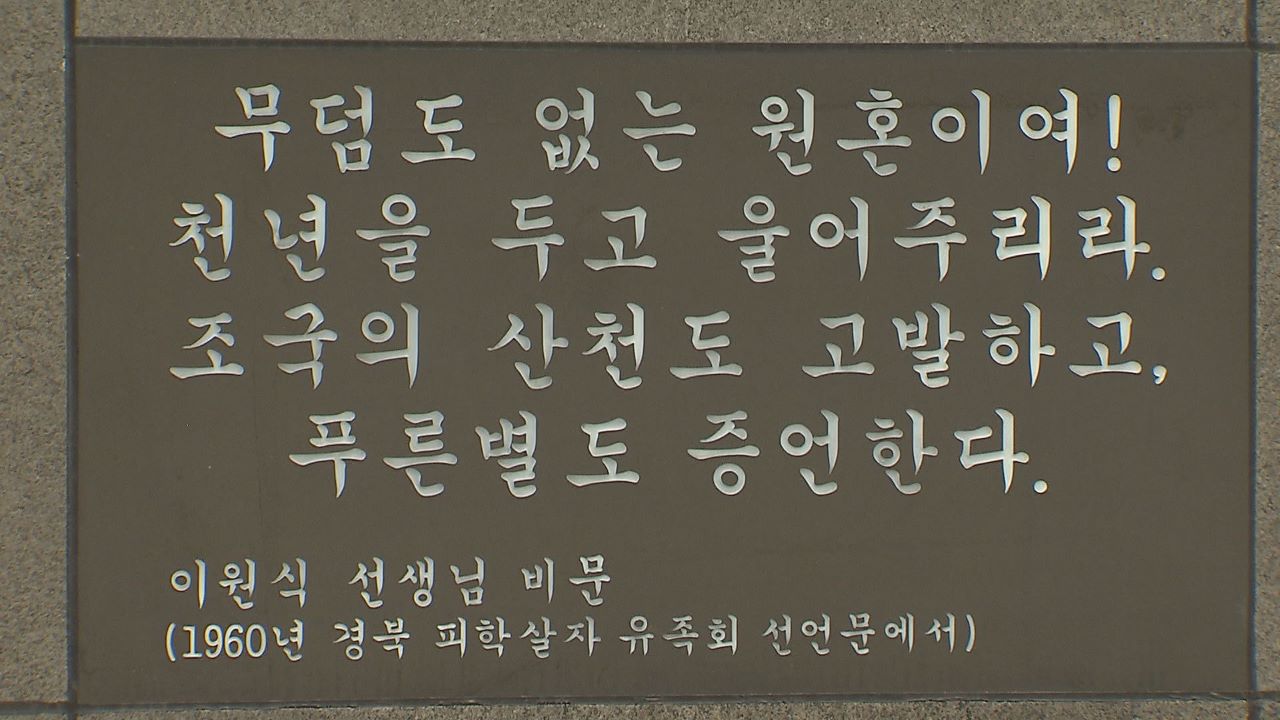 무덤도 없는 원혼이여!
천년을 두고 울어주리라.
조국의 산천도 고발하고,
푸른별도 증언한다.
이원식 선생님 비문
(1960년 경북 피학살자 유족회 선언문에서)